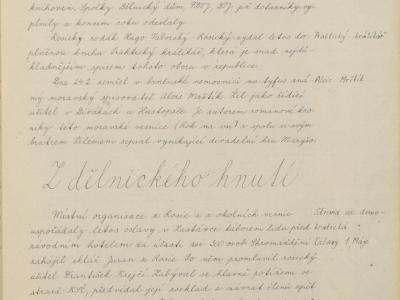 knihoven. Spolky Dělnický dům, řady dotazníky vy-
plnily a koncem roku odeslaly.
Rosický rodák Hugo Táborský-Rosický vydal letos do- Praktický králíkář
plněnou knihu Praktický králíkář, která je snad nejdů-
kladnějším spisem tohoto oboru v republice.
Dne 24.2. zemřel v brněnské nemocnici na tyfus zná- Alois Mrštík
mý moravský spisovatel Alois Mrštík. Žil jako řídící
učitel v Divákách u Hustopeče. Je autorem románové kro-
niky této moravské vesnice (Rok na vsi) a spolu se svým
bratrem Vilémem sepsal vynikající divadelní hru Maryšu.
Z dělnického hnutí
Místní organisace z Rosic a z okolních vesnic Strana soc. demo-
uspořádaly letos oslavy v Zastávce táborem lidu před kratická
závodním hotelem za účasti asi 300 osob. Shromáždění Oslavy 1. Máje
zahájil sklář Juran z Rosic. Po něm promluvil rosický
učitel František Krejčí. Zabýval se hlavně potížemi ve
straně KPČ, předvídal její rozklad a návrat členů zpět